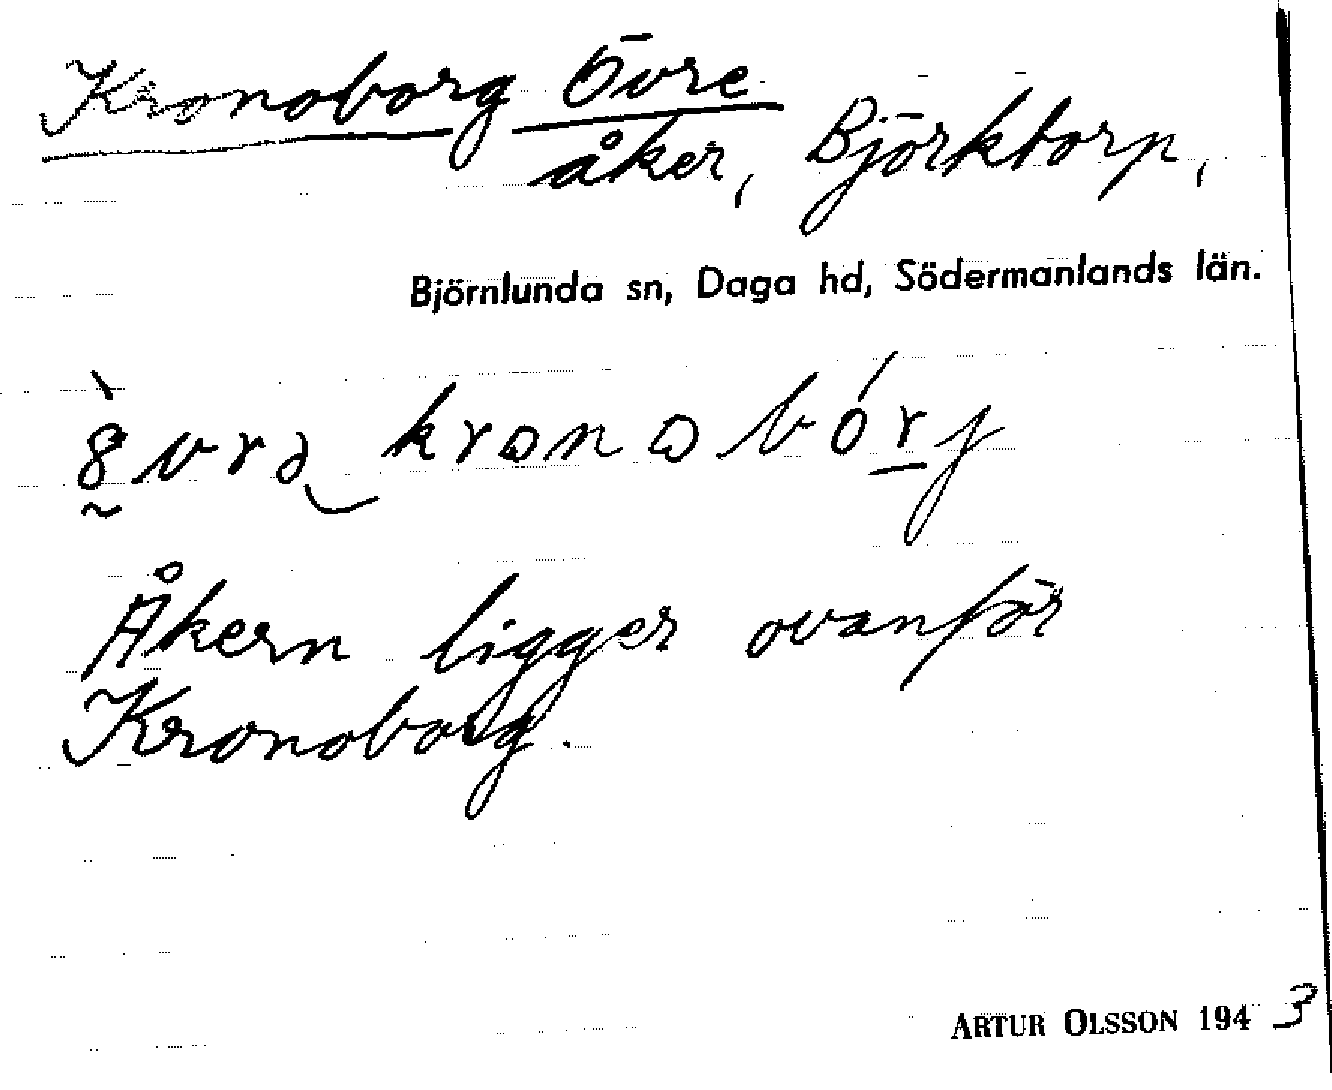 Kronoborg Övre
åker, Björktorp,
Björnlunda sn, Daga hd, Södermanlands län.
Åkern ligger ovanför
Kronoborg.
ARTUR OLSSON 1943